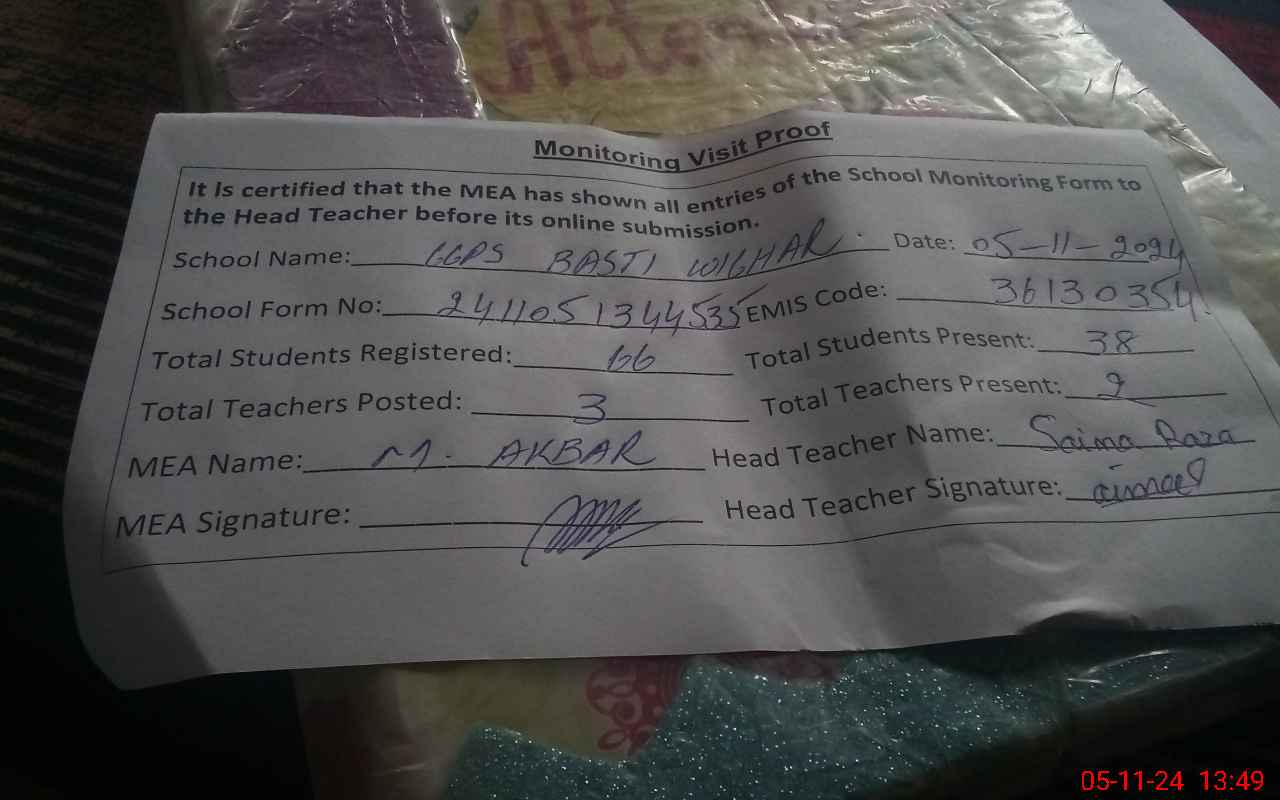 Atten
Monitoring Visit Proof
It is certified that the MEA has shown all entries of the School Monitoring Form to
the Head Teacher before its online submission.
School Name: GGPS BASTI WIGHAR. Date: 05-11-2024
School Form No: 2411051344535 EMIS Code: 36130354
Total Students Registered: 66 Total Students Present: 38
Total Teachers Posted: 3 Total Teachers Present: 2
MEA Name: M. AKBAR Head Teacher Name: Saima Raza
MEA Signature: Head Teacher Signature:
05-11-24 13:49